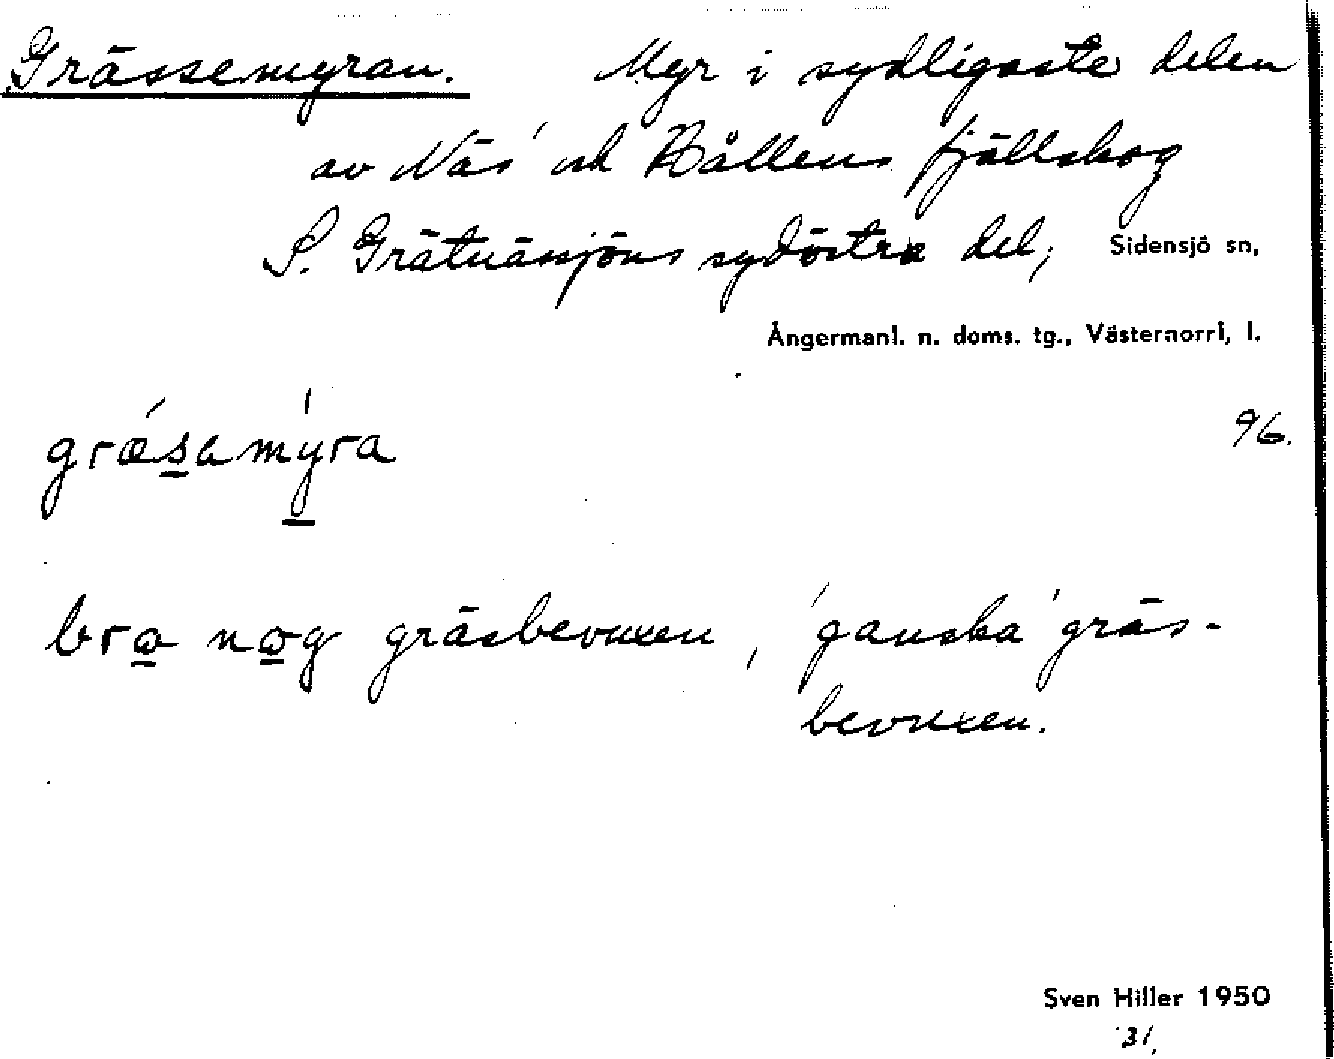 Grässemyran. Myr i sydligaste delen
av Näs' och Hållens fjällskog
S. Grätnäsjöns sydöstra del; Sidensjö sn,
Ångermanl. n. doms. tg., Västernorrl, l.
96.
græ´samy´ra
bra nog gräsbevuxen, 'ganska' gräs-
bevuxen.
Sven Hiller 1950
31.